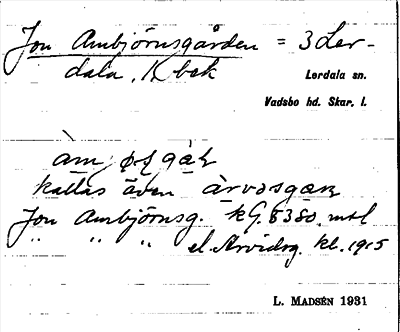 Jon Ambjörnsgården = 3 Ler-
dala, K bek
Lerdala sn.
Vadsbo hd. Skar. l.
kallas även àrvəsgæɳ
Jon Ambjörnsg. kG. 8380 mtl
" " " el. Arvidsg. kl. 1915
L. MADSÉN 1931